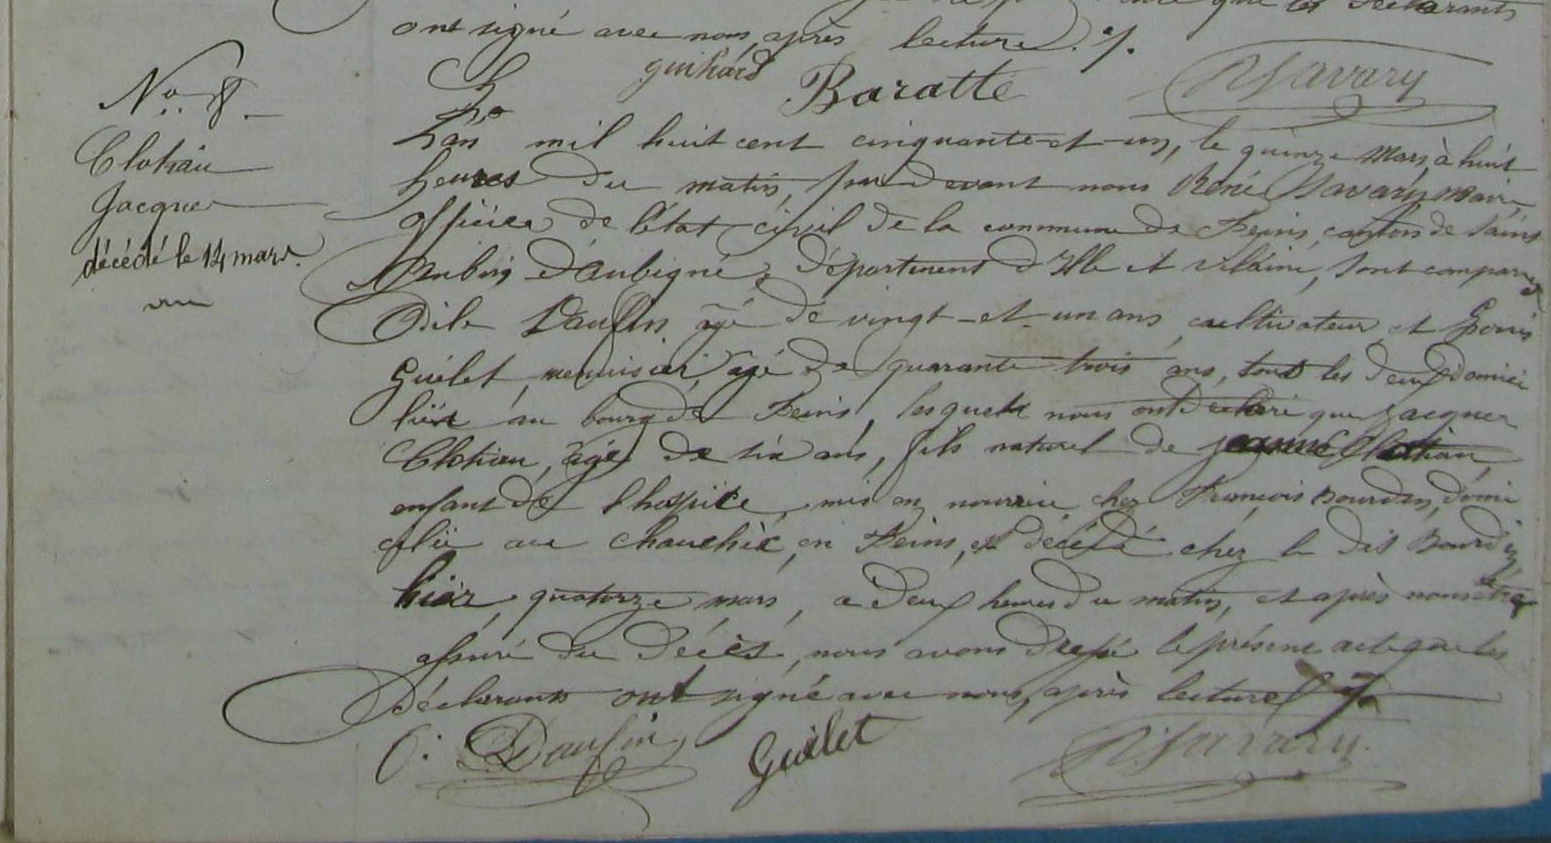 ont signé avec nous, après lecture ./.
guihard Baratte R Savary
No 8
Clohiau
Jacques
décédé le 14 mars.
L'an mil huit cent cinquante-et-un, le quinze Mars à huit
heures du matin, par devant nous René Savary Maire
officier de l'état civil de la commune de Feins, canton de Saint
Aubin d'Aubigné, département d'Ille et Vilaine, sont comparus
Odile Daufin, agé de vingt-et-un ans, cultivateur, et
Guélet, menuisier, agé de quarante trois ans, tous les deux domici
liés au bourg de Feins, lesquels nous ont declaré que Jacques
Clohiau, âgé de six ans, fils naturel de Jeanne Clohiau,
enfant de l'hospice, mis en nourrice chez François Bourdin, domi
cilié au Chauchix, en Feins, est décédé chez le dit Bourdin,
hier quatorze mars, a deux heures du matin, et après nous être
assuré du décès, nous avons dressé le présent acte que les
déclarants ont signé avec nous, après lecture ./.
O. Daufin Guélet R Savary